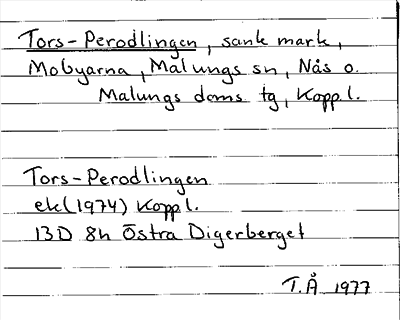 Tors-Perodlingen, sank mark,
Mobyarna, Malungs sn, Nås o.
Malungs doms tg, Kopp.l.
Tors-Perodlingen
ek(1974) Kopp l.
13D 8h Östra Digerberget
T.Å 1977